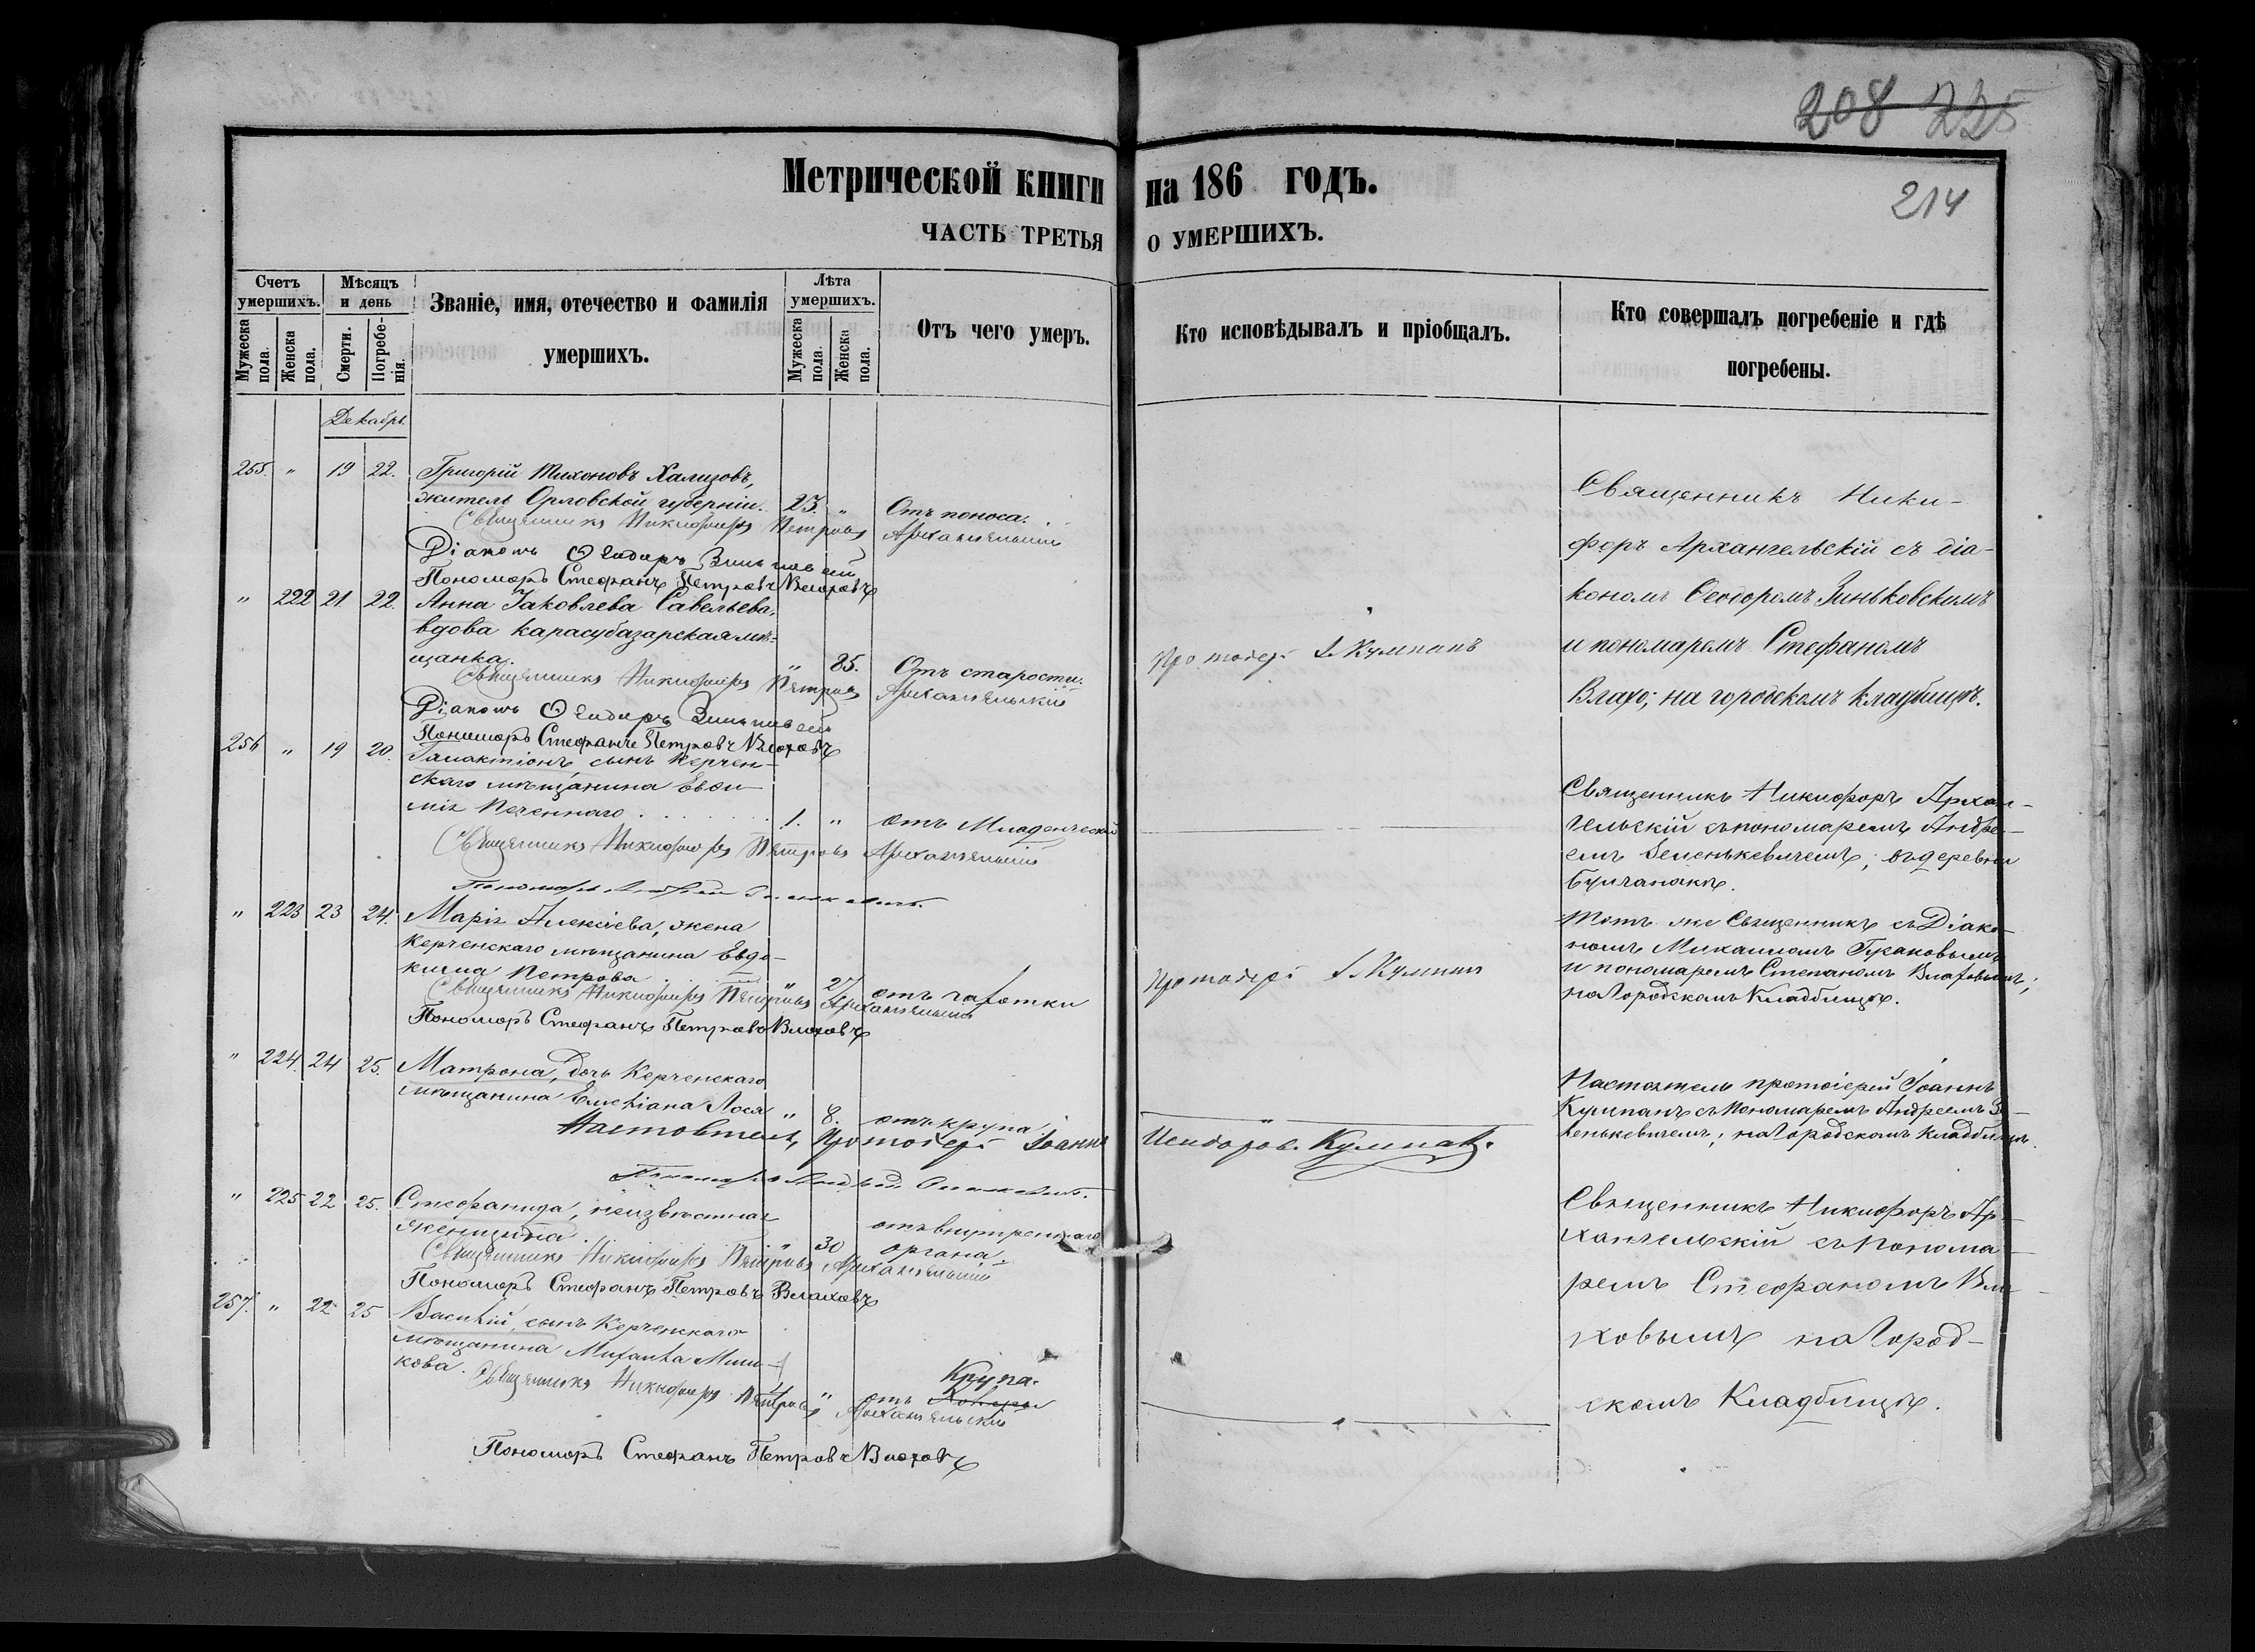 208 225
Метрической книги на 186 годъ.
214
ЧАСТЬ ТРЕТЬЯ О УМЕРШИХЪ.
Счетъ умершихъ.
Мужеска пола.
Женска пола.
Мѣсяцъ и день
Смерти.
Погребенія.
Званіе, имя, отечество и фамилія
умершихъ.
Лѣта умершихъ.
Мужеска пола.
Женска пола.
Отъ чего умеръ.
Кто исповѣдывалъ и пріобщалъ.
Кто совершалъ погребеніе и гдѣ
погребены.
Декабрь.
255. " 19 22. Григорій Тихоновъ Хализовъ,
житель Орловской губерніи. 23. " Отъ поноса.
Священникъ Никифоръ Петровъ Архангельскій
Діаконъ Ѳеодоръ Зиньковскій
Пономарь Стефанъ Петровъ Влаховъ
Священникъ Ники-
форъ Архангельскій съ діа-
кономъ Ѳеодоромъ Зиньковскимъ
и пономаремъ Стефаномъ
на городскомъ кладбищѣ.
" 222 21 22. Анна Іаковлева Савельева,
вдова карасубазарская мѣ-
щанка. " 85. Отъ старости.
Протоіерей І. Кумпанъ
Священникъ Никифоръ Петровъ Архангельскій
Діаконъ Ѳеодоръ Зиньковскій
Пономарь Стефанъ Петровъ Влаховъ
256 " 19 20. Галактіонъ, сынъ Керчен-
скаго мѣщанина Евѳи-
мія Печеннаго 1. " отъ Младенческой
Священникъ Никифоръ Петровъ Архангельскій
Пономарь Андрей
Священникъ Никифоръ Архан-
гельскій съ пономаремъ Андре-
емъ Зеленькевичемъ; въ деревни
Булганакъ.
" 223 23 24. Марія Алексіева, жена
Керченскаго мѣщанина Евдо-
кима Петрова " 27 отъ чахотки
Протоіерей І. Кумпанъ
Священникъ Никифоръ Петровъ Архангельскій
Пономарь Стефанъ Петровъ Влаховъ
Тотъ же Священникъ съ Діако-
номъ Михаиломъ
и пономаремъ Стефаномъ Влаховымъ;
на Городскомъ Кладбищѣ.
" 224. 24 25. Матрона, дочь Керченскаго
мѣщанина Емеліана Лося " 8. отъ крупа
Настоятель Протоіерей Іоаннъ Исидоровъ Кумпанъ.
Пономарь Андрей
Настоятель протоіерей Іоаннъ
Кумпанъ съ Пономаремъ Андреемъ Зе-
ленькевичемъ; на Городскомъ Кладбищѣ.
" 225 22 25. Стефанида, неизвѣстная
женщина " 30 отъ внутренняго
органа
Священникъ Никифоръ Петровъ Архангельскій
Пономарь Стефанъ Петровъ Влаховъ
Священникъ Никифоръ Ар-
хангельскій съ Понома-
ремъ Стефаномъ Вла-
ховымъ на Город-
скомъ Кладбищѣ.
257. " 22 25 Василій, сынъ Керченскаго
мѣщанина Михаила Миш-
кова. 4 " отъ Крупа.
Священникъ Никифоръ Петровъ Архангельскій
Пономарь Стефанъ Петровъ Влаховъ